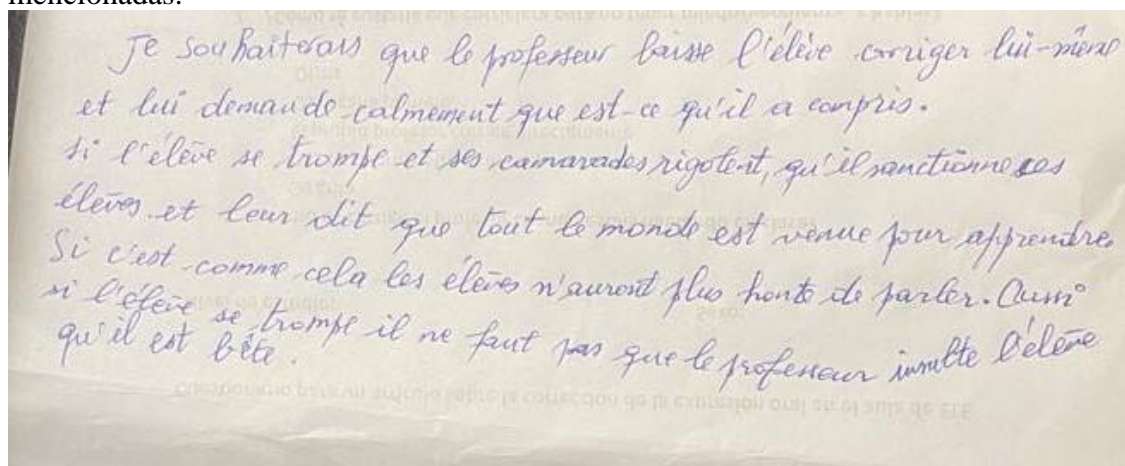 mencionadas.
Je souhaiterais que le professeur laisse l'élève corriger lui-même
et lui demande calmement que est-ce qu'il a compris.
si l'élève se trompe et ses camarades rigotent, qu'il sanctionne ces
élèves et leur dit que tout le monde est venue pour apprendre.
Si c'est comme cela les élèves n'auront plus honte de parler. Aussi
si l'élève se trompe il ne faut pas que le professeur insulte l'élève
qu'il est bête.
Cuestionario para un artículo sobre la corrección de la expresión oral en el aula de ELE